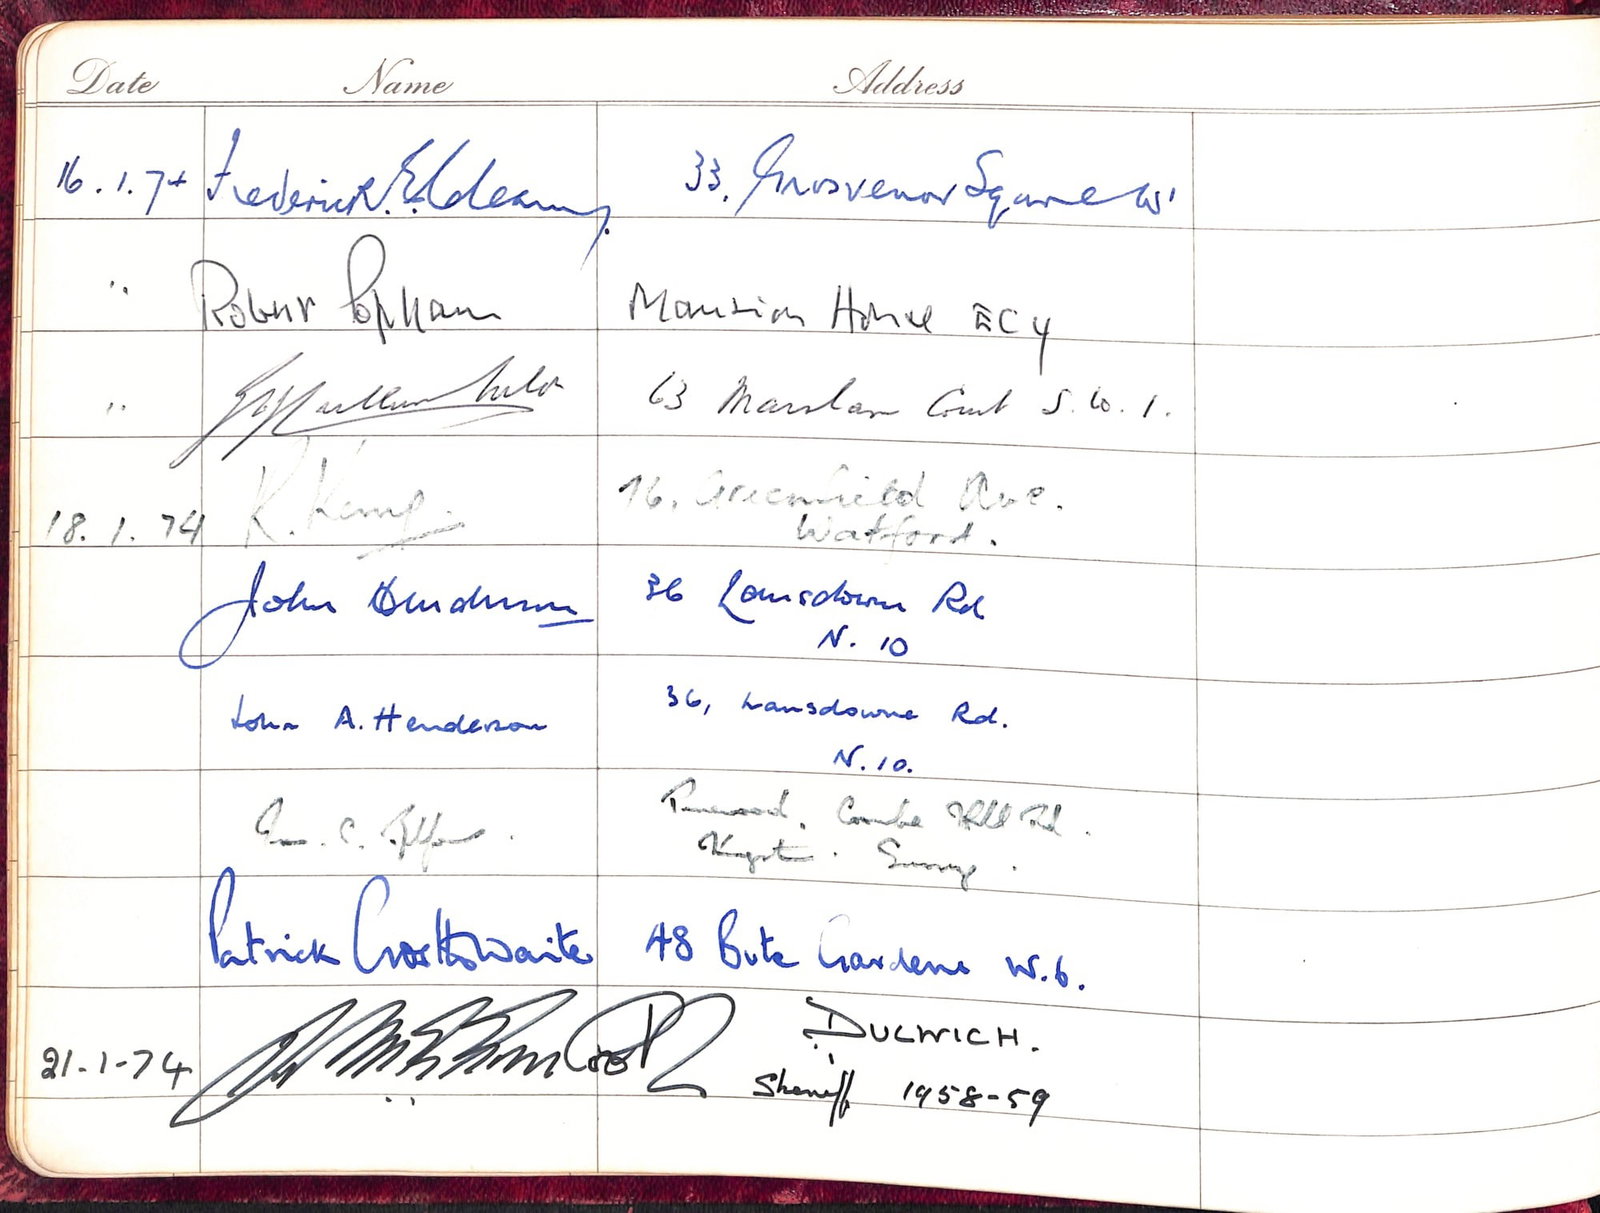 Date Name Address
16.1.74 Frederick E. Cleary 33, Grosvenor Square W1
" Robert Popham Mansion House EC4
" 63 Marsham Court S.W.1.
18.1.74 R. Kemp. 76, Greenfield Ave.
Watford.
John Henderson 36 Lansdowne Rd
N.10
John A. Henderson 36, Lansdowne Rd.
N.10.
C. Pinewood, Coombe Hill Rd.
Kingston. Surrey.
Patrick Crosthwaite 48 Bute Gardens W.6.
21-1-74 DULWICH.
Sheriff 1958-59